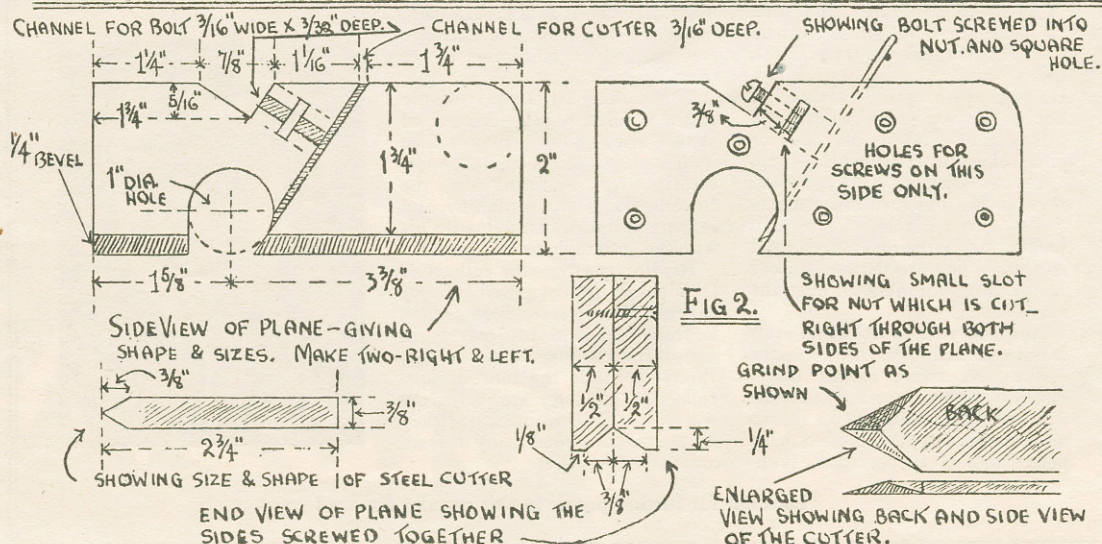 CHANNEL FOR BOLT 3/16" WIDE X 3/32" DEEP.
CHANNEL FOR CUTTER 3/16" DEEP.
SHOWING BOLT SCREWED INTO
NUT. AND SQUARE
HOLE.
1 1/4"
7/8"
1 1/16"
1 3/4"
5/16"
1 3/4"
1/4"
BEVEL
1" DIA.
HOLE
1 3/4"
2"
1 5/8"
3 3/8"
3/8"
HOLES FOR
SCREWS ON THIS
SIDE ONLY.
SIDE VIEW OF PLANE - GIVING
SHAPE & SIZES. MAKE TWO-RIGHT & LEFT.
FIG 2.
SHOWING SMALL SLOT
FOR NUT WHICH IS CUT
RIGHT THROUGH BOTH
SIDES OF THE PLANE.
3/8"
3/8"
2 3/4"
SHOWING SIZE & SHAPE OF STEEL CUTTER
1/2"
1/2"
1/8"
1/4"
3/8"
END VIEW OF PLANE SHOWING THE
SIDES SCREWED TOGETHER
GRIND POINT AS
SHOWN
BACK
ENLARGED
VIEW SHOWING BACK AND SIDE VIEW
OF THE CUTTER.